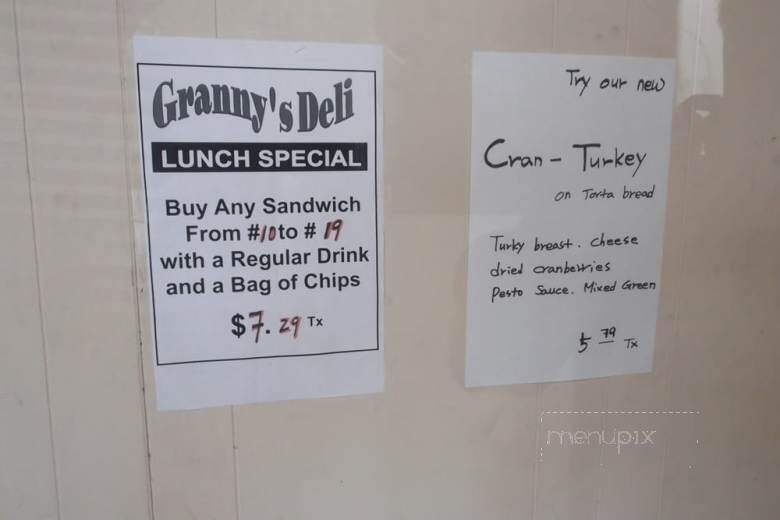 Granny's Deli
LUNCH SPECIAL
Buy Any Sandwich
From #10 to # 19
with a Regular Drink
and a Bag of Chips
$7.29 Tx
Try our new
Cran - Turkey
on Torta bread
Turky breast. cheese
dried cranberries
Pesto Sauce. Mixed Green
5 79 Tx
menupix